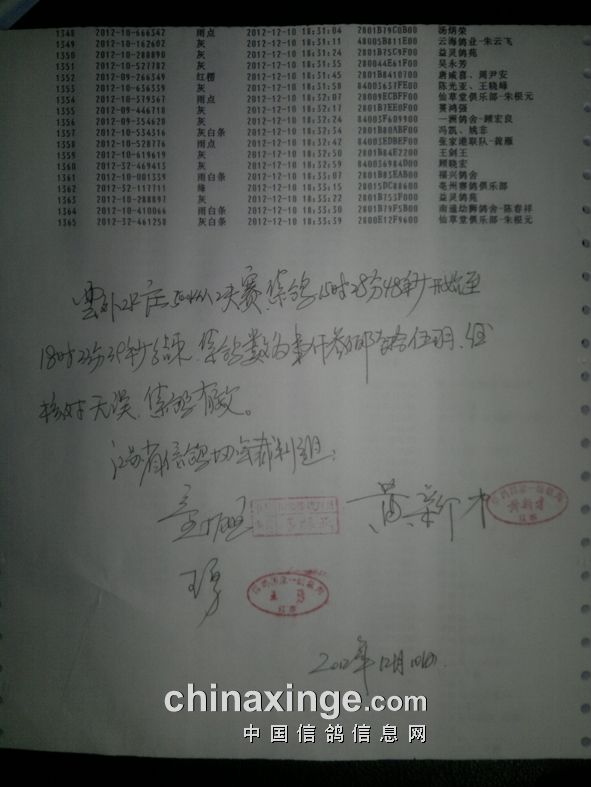 1348 2012-10-666342 雨点 2012-12-10 18:31:04 2801B79C0B00 汤炳荣
1349 2012-10-162602 灰 2012-12-10 18:31:11 48005B811E00 云海鸽业-朱云飞
1350 2012-10-288890 灰 2012-12-10 18:31:24 2801B75C9F00 益灵鸽苑
1351 2012-10-527782 灰 2012-12-10 18:31:35 280044E61F00 吴永芳
1352 2012-09-266349 红楞 2012-12-10 18:31:45 2801B8410700 唐咸喜、周尹安
1353 2012-10-636339 灰 2012-12-10 18:31:50 84003637FE00 陈光亚、王晓峰
1354 2012-10-379367 雨点 2012-12-10 18:32:08 2009ECBFF00 仙草堂俱乐部-朱根元
1355 2012-09-446710 灰 2012-12-10 18:32:17 2801B7EE0F00 龚鸿强
1356 2012-09-354628 灰 2012-12-10 18:32:24 84003F609900 一洲鸽舍-顾宏良
1357 2012-10-534316 灰白条 2012-12-10 18:32:34 2801B80ABF00 冯凯、姚非
1358 2012-10-528776 雨点 2012-12-10 18:32:42 84003EDBEF00 张家港联队-龚雁
1359 2012-10-619619 灰 2012-12-10 18:32:50 2801B84E7200 王剑王
1360 2012-32-469413 灰 2012-12-10 18:32:59 840036984D00 顾晓宏
1361 2012-10-001339 雨白条 2012-12-10 18:33:07 2801B85EAB00 福兴鸽舍
1362 2012-32-117711 绛 2012-12-10 18:33:15 28015DC88600 亳州赛鸽俱乐部
1363 2012-10-288897 灰 2012-12-10 18:33:22 2801B753F000 益灵鸽苑
1364 2012-10-410066 雨白条 2012-12-10 18:33:30 2801B79F5B00 南通幼狮鸽舍-陈春祥
1365 2012-32-461250 灰白条 2012-12-10 18:33:39 2800E12F9600 仙草堂俱乐部-朱根元
决赛,集鸽15时28分48秒开始至
18时33分39秒结束,集鸽数为壹仟叁佰陆拾伍羽,经
核对无误,集鸽有效。
江苏省信鸽协会裁判组:
黄新才
黄新才
王勇
王勇
2012年12月10日
chinaxinge.com
中国信鸽信息网